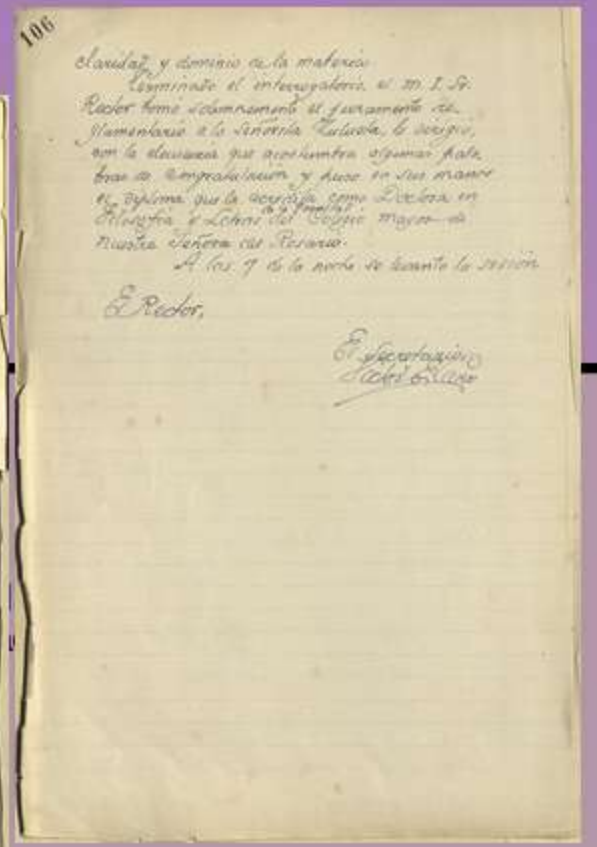 106
claridad y dominio de la materia.
Terminado el interrogatorio, el M. I. Sr.
Rector tomó solemnemente el juramento re-
glamentario a la Señorita Zulueta, le dirigió,
con la elocuencia que acostumbra algunas pala
bras de congratulación y puso en sus manos
el diploma que la acredita como Doctora en
de la Facultad
Filosofía y Letras del Colegio mayor de
Nuestra Señora del Rosario.
A las 7 de la noche se levantó la sesión
El Rector,
El Secretario